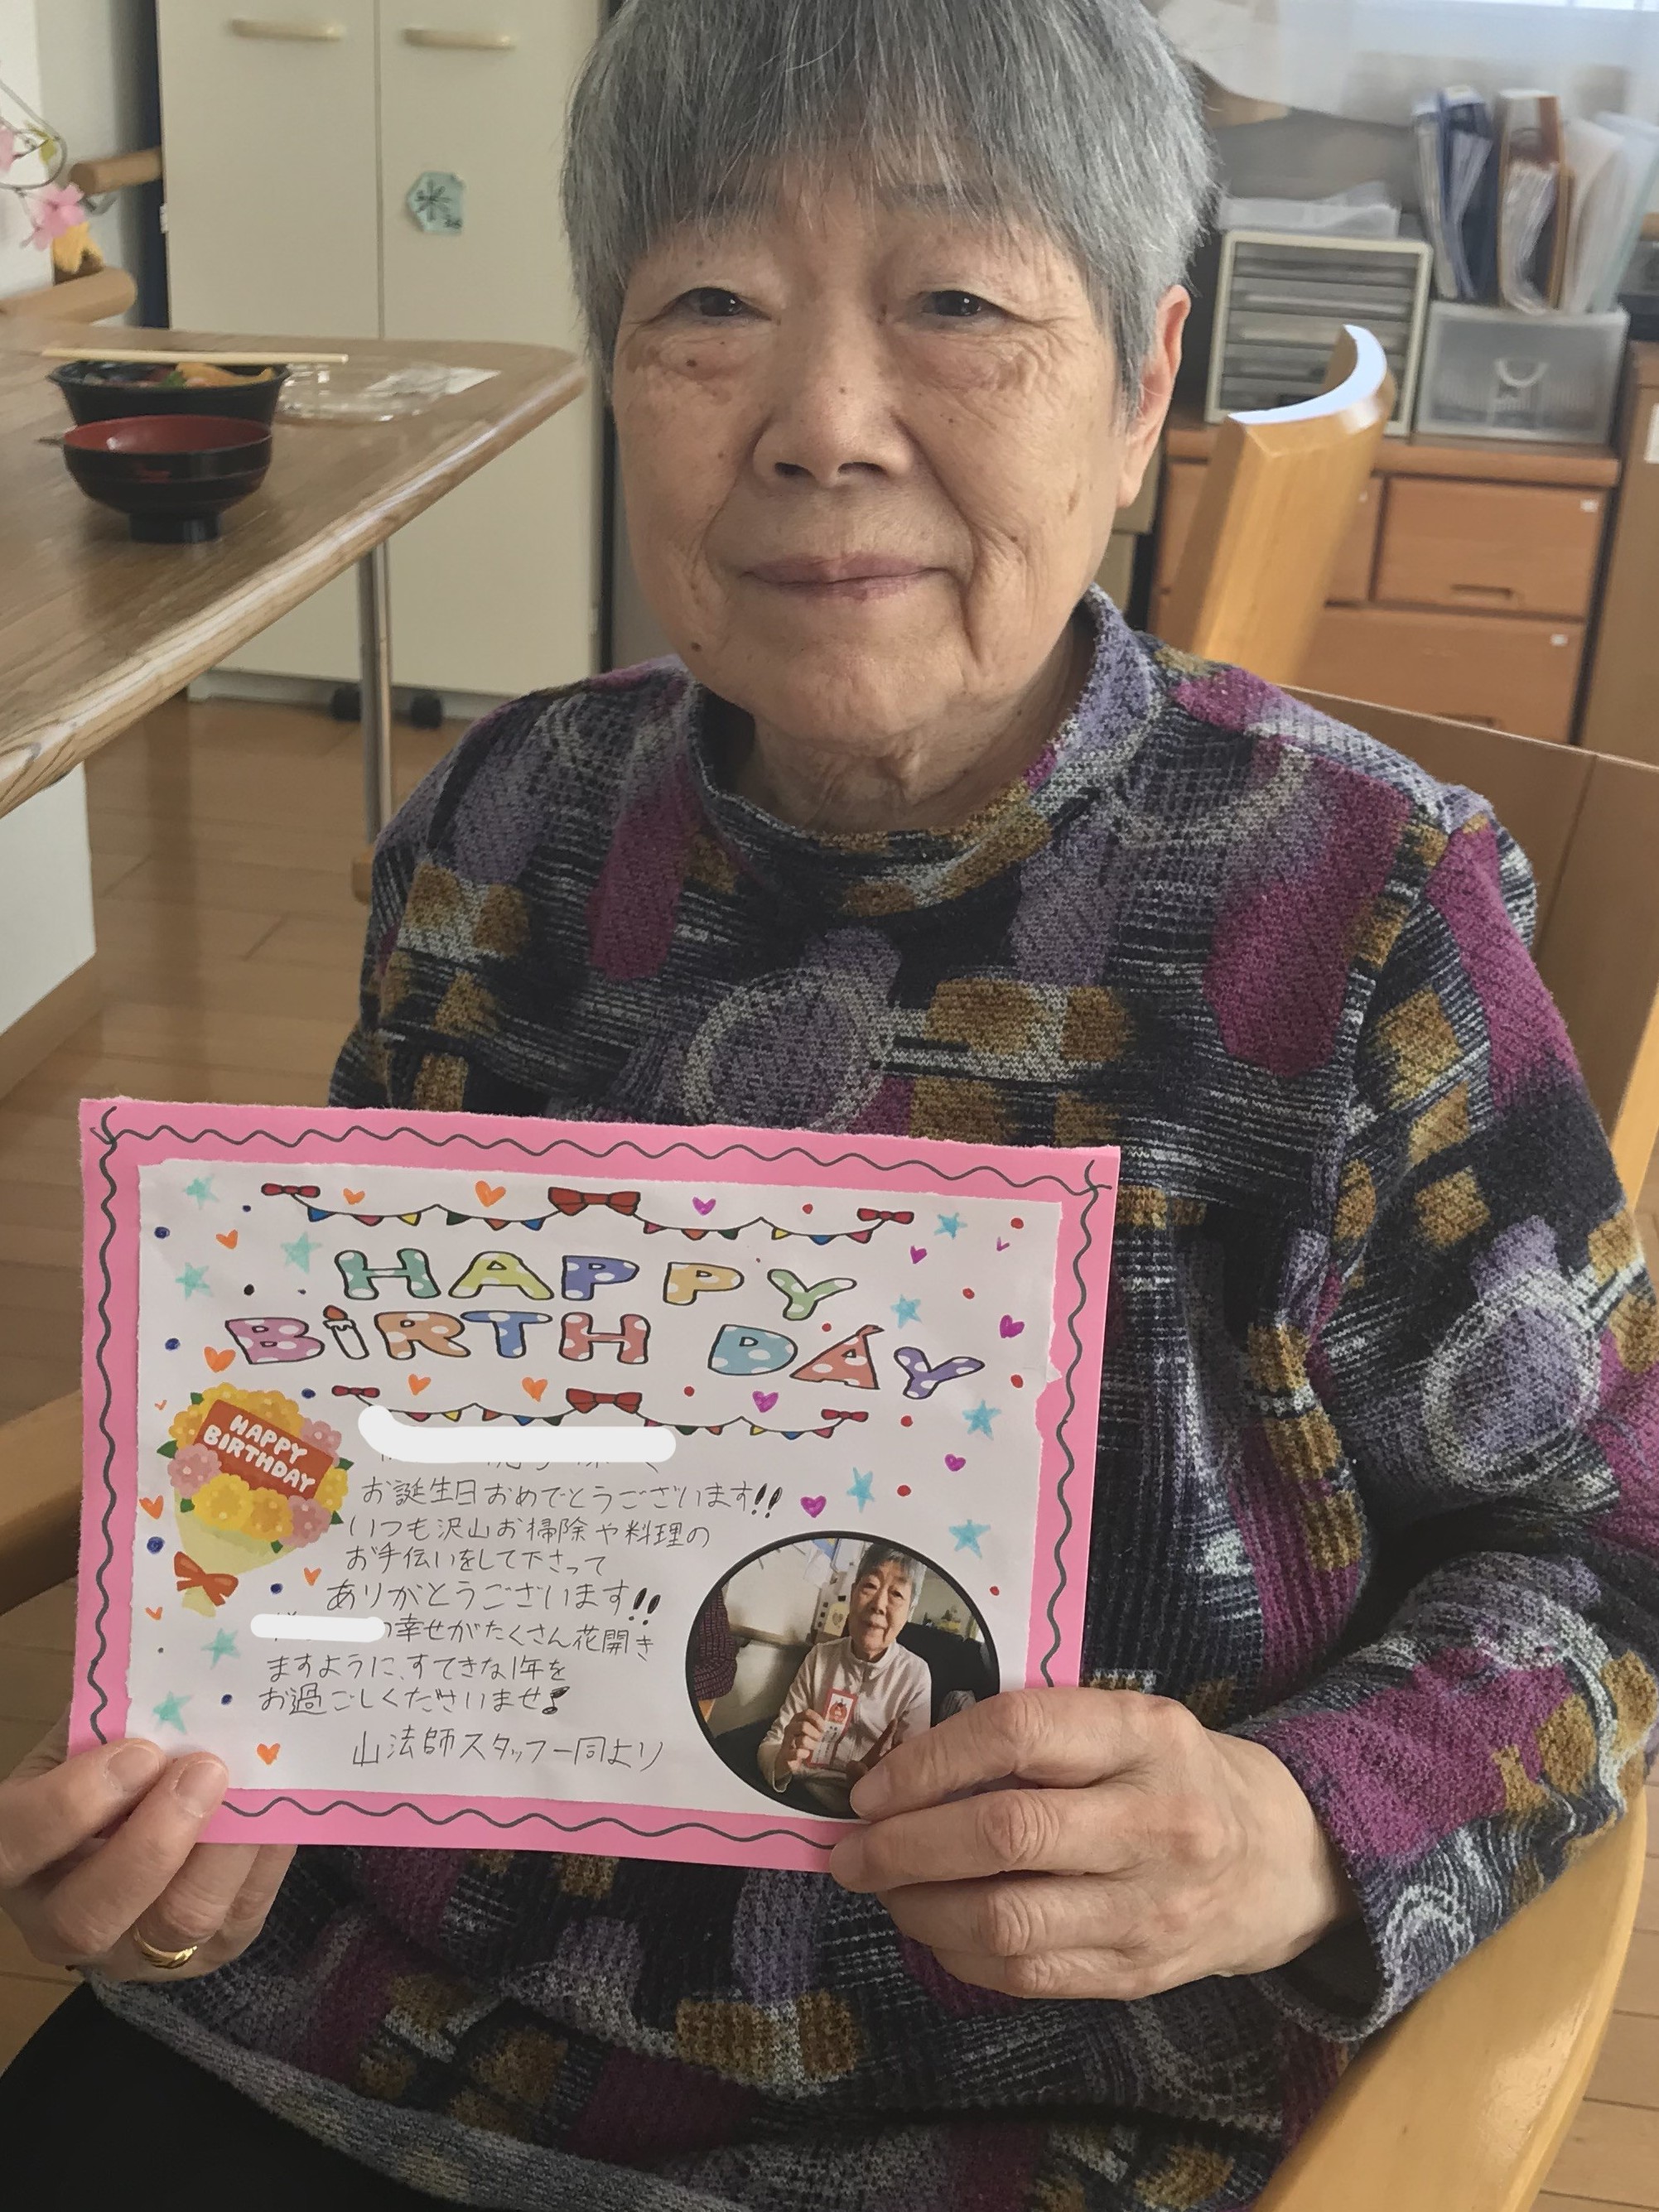 HAPPY
BiRTH DAY
HAPPY
BIRTHDAY
お誕生日おめでとうございます!!
いつも沢山お掃除や料理の
お手伝いをして下さって
ありがとうございます!!
の幸せがたくさん花開き
ますように、すてきな1年を
お過ごしくださいませ♪
山法師スタッフ一同より